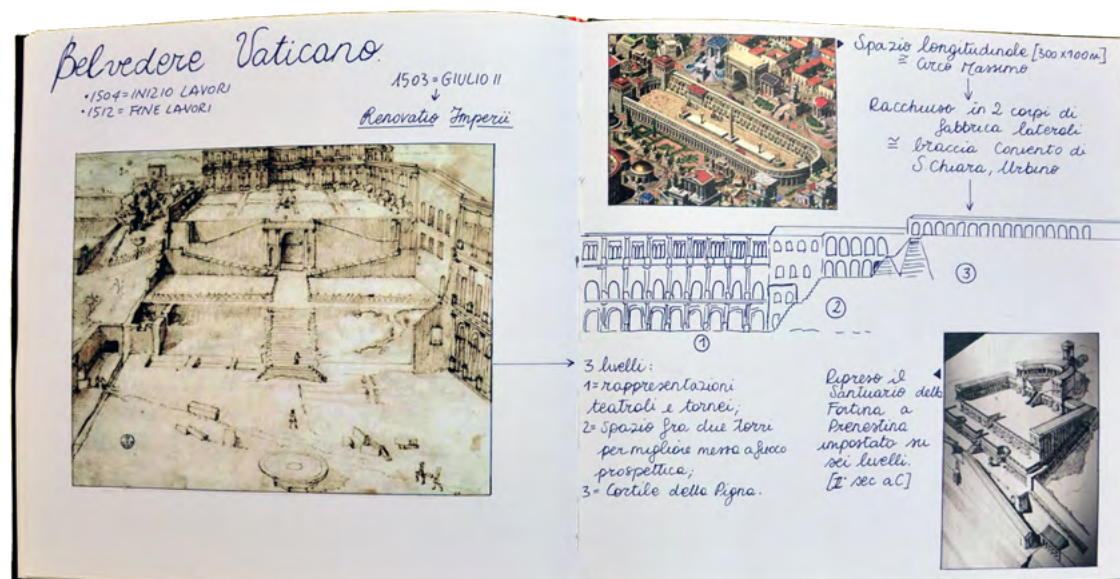 Belvedere Vaticano.
• 1504 = INIZIO LAVORI
• 1512 = FINE LAVORI
1503 = GIULIO II
↓
Renovatio Imperii
Spazio longitudinale [300 x 100 m]
≅ Circo Massimo
↓
Racchiuso in 2 corpi di
fabbrica laterali
≅ braccia Convento di
S. Chiara, Urbino
↓
①
②
③
3 livelli:
1 = rappresentazioni
teatrali e tornei;
2 = Spazio fra due torri
per migliore messa a fuoco
prospettica;
3 = Cortile della Pigna.
Ripreso il
Santuario della
Fortuna a
Prenestina
impostato su
sei livelli.
[II° sec a.C]